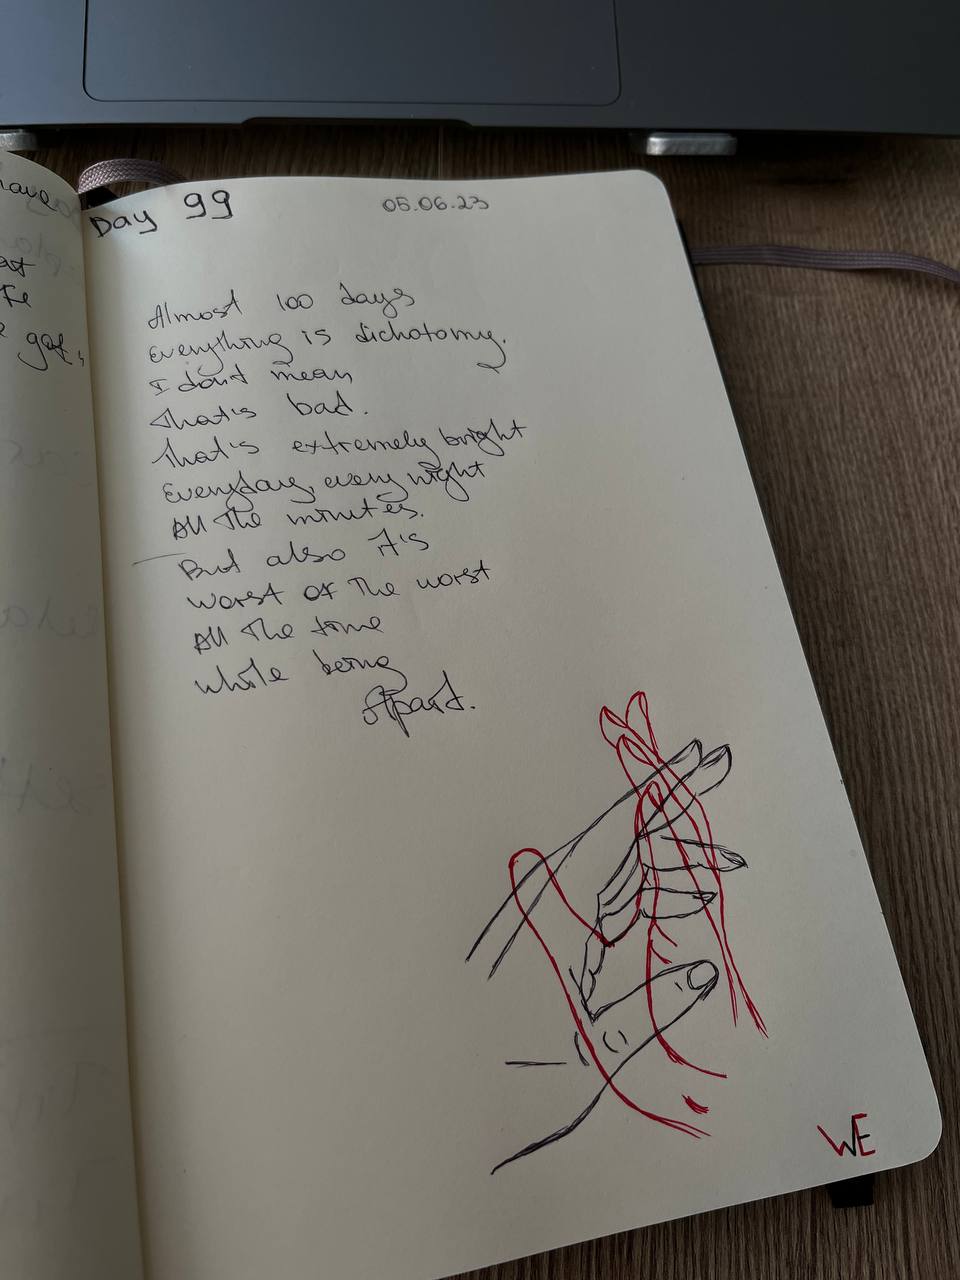 have
at
the
got,
Day 99
05.06.23
Almost 100 days
Everything is dichotomy.
I don't mean
That's bad.
That's extremely bright
Everyday, every night
All the minutes.
But also it's
Worst of the worst
All the time
While being
Apart.
WE